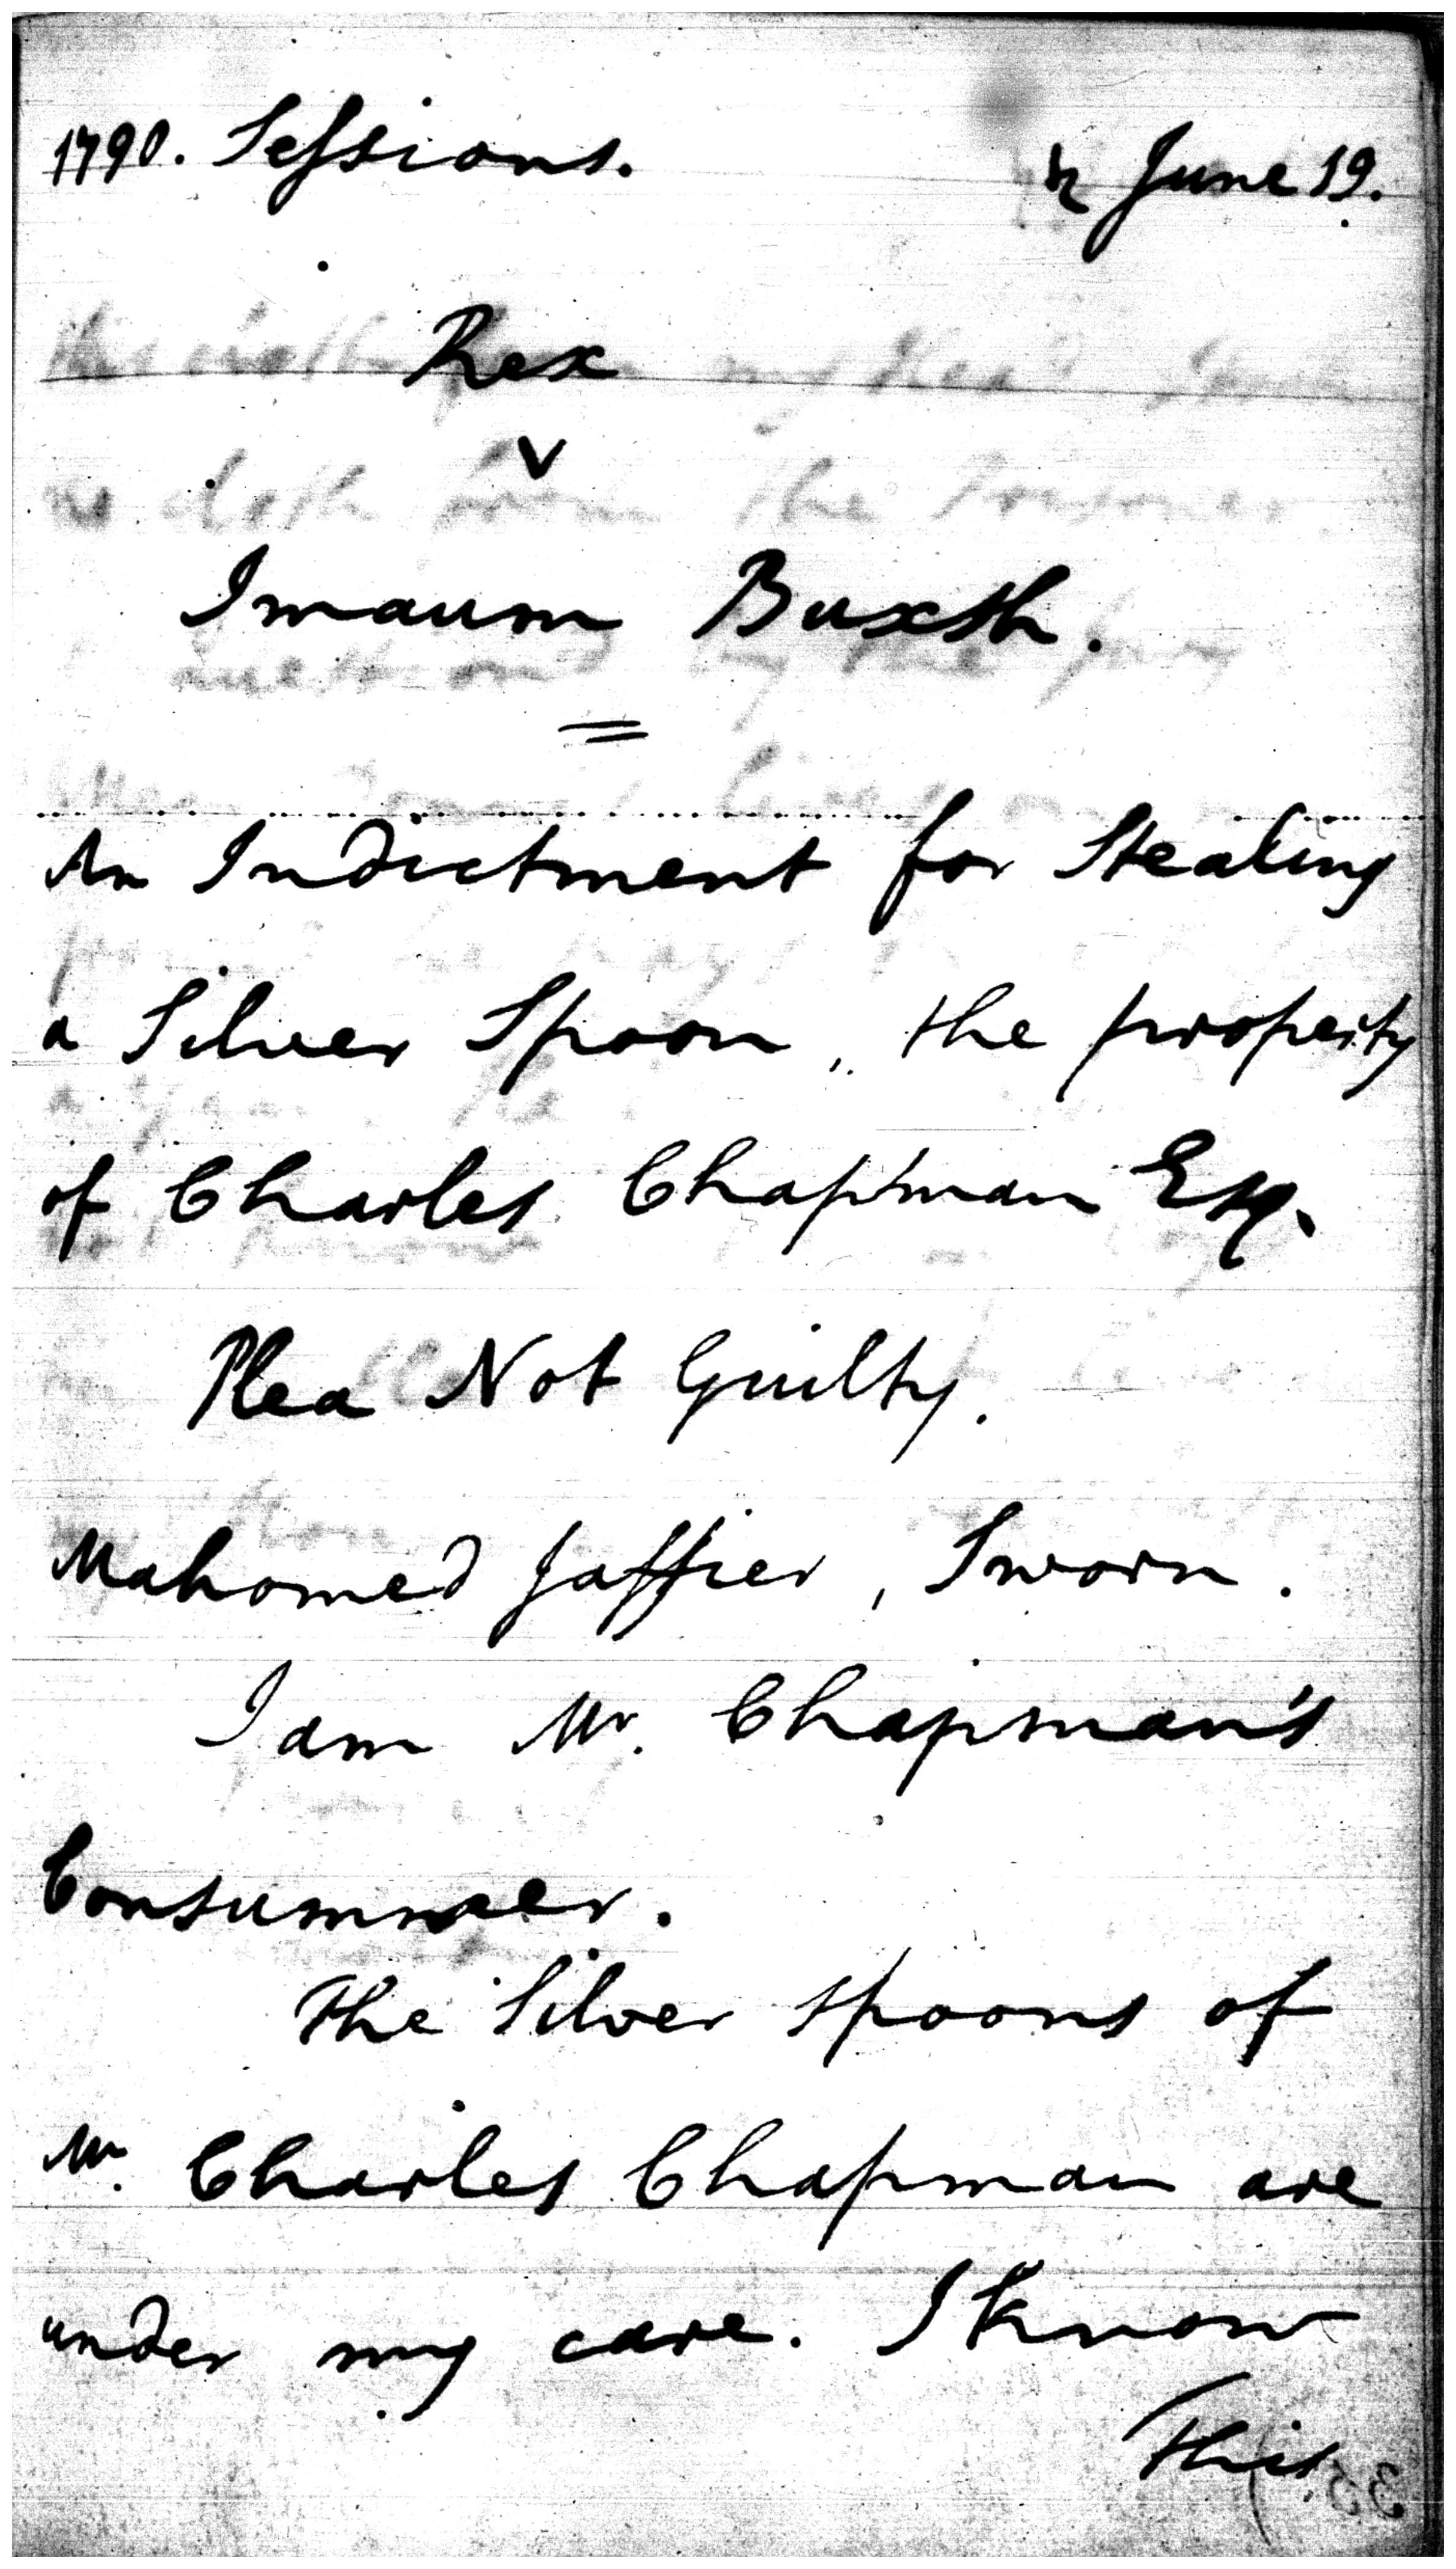 1790. Sessions. ♄ June 19.
Rex
v
Imaum Buxsh.
An Indictment for Stealing
a Silver Spoon, the property
of Charles Chapman Esq.
Plea Not Guilty.
Mahomed Jaffier, Sworn.
I am Mr. Chapman's
Consummer.
The Silver spoons of
Mr. Charles Chapman are
under my care. I know
This